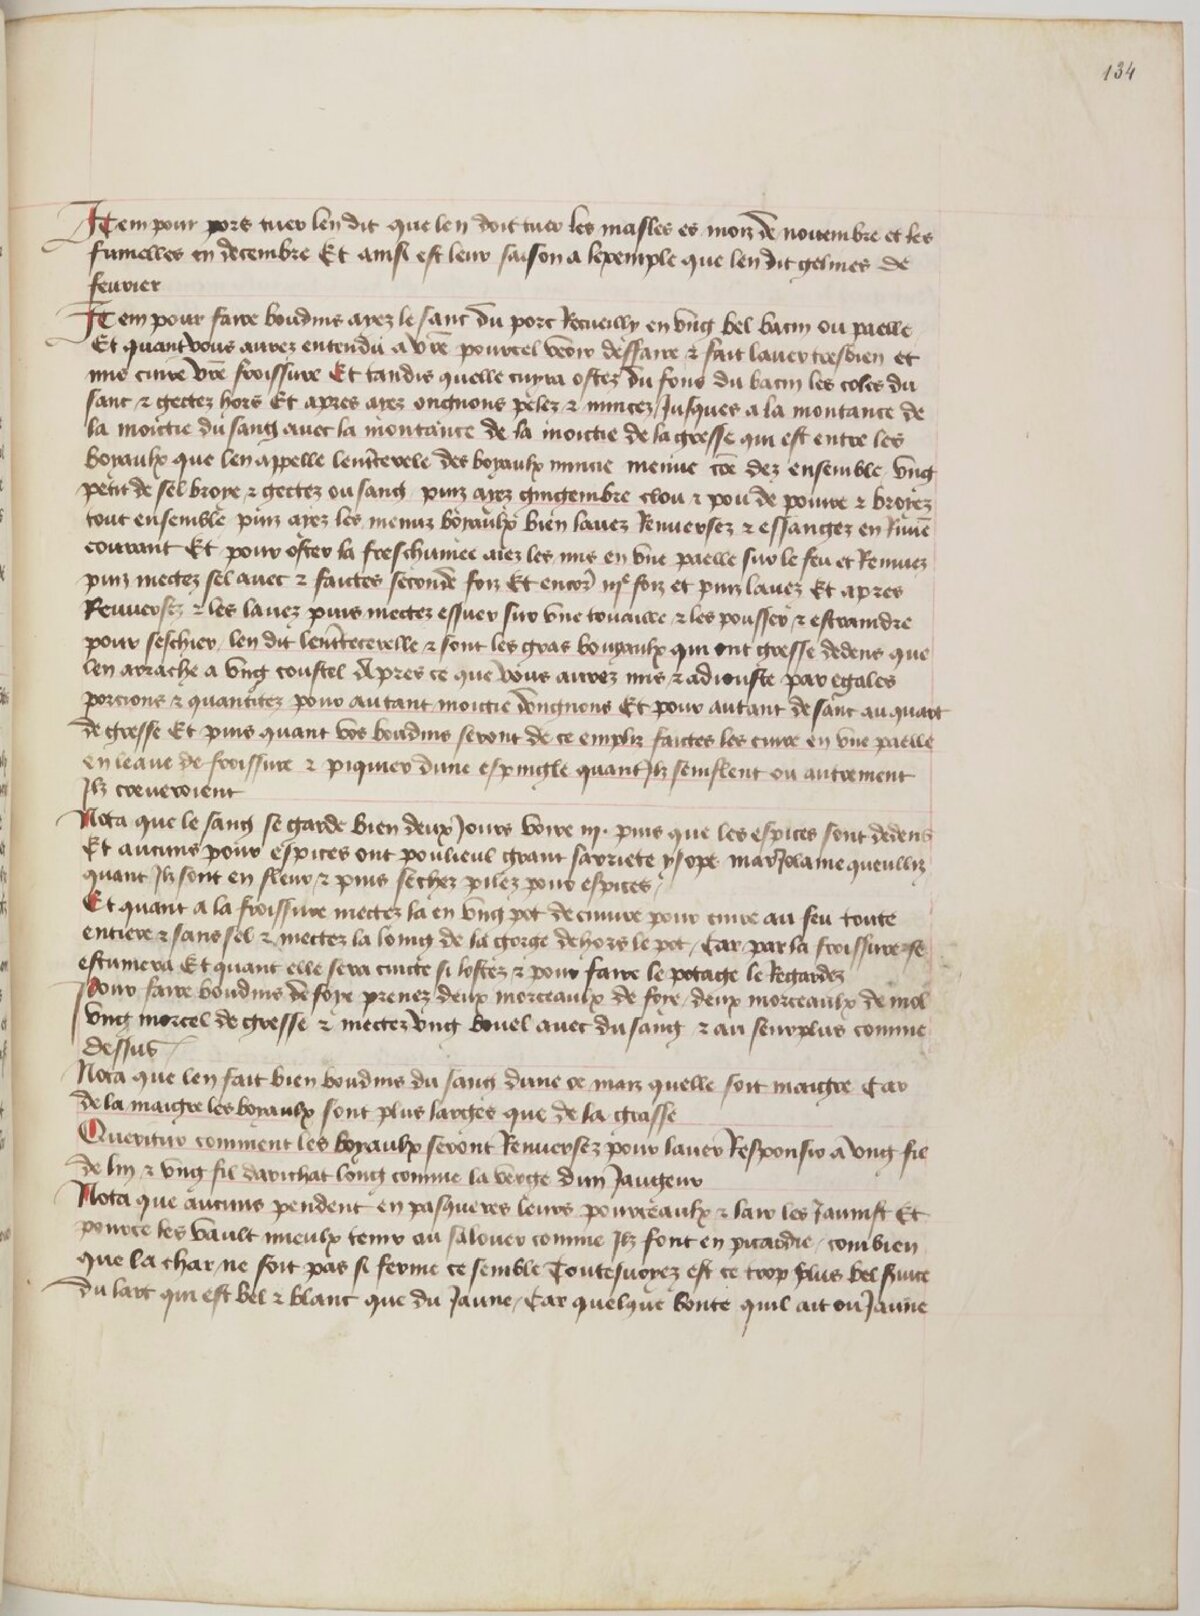 134
Item pour pors tuer len dit que len doit tuer les masles es moiz de nouembre et les
fumelles en decembre Et ainsi est leur saison a lexemple que len dit gelines de
feurier
Item pour faire boudins ayez le sanc du porc Recueilly en vng bel bacin ou paelle
Et quant vous aurez entendu a vre pourcel veoir deffaire & fait lauer tresbien et
mis cuire vre froissure Et tandis quelle cuyra ostez du fons du bacin les coles du
sanc & gectez hors Et apres ayez ongnons pelez & mincez Jusques a la montance de
la moictie du sang auec la montance de la moictie de la gresse qui est entre les
boyaulx que len appelle lentrecele des boyaulx mincie menue coe dez ensemble vng
petit de sel broye & gectez ou sang puiz ayez gingembre clou & pou de poiure & broyez
tout ensemble puiz ayez les menuz boyaulx bien lauez Renuersez & essangez en Riuiē
courant Et pour oster la freschumee aiez les mis en vne paelle sur le feu et Remuez
puiz mectez sel auec & faictes seconde foiz Et encor iije foiz et puiz lauez Et apres
Renuersez & les lauez puis mectez essuer sur vne touaille & les pousser & estraindre
pour seschier len dit lentrecerelle & sont les gras bouyaulx qui ont gresse dedens que
len arrache a vng coustel Apres ce que vous aurez mis & adiouste par egales
porcions & quantitez pour autant moictie dongnons Et pour autant de sanc au quart
de gresse Et puis quant voz boudins seront de ce empliz faictes les cuire en vne paelle
en leaue de froissure & piquier dune espingle quant Ilz senflent ou autrement
Ilz creueroient
Nota que le sang se garde bien deux Jours voire iij. puis que les espices sont dedens
Et aucuns pour espices ont poulieul grant sarriete ysope marJolaine queulliz
quant Ilz sont en fleur & puis sechez pilez pour espices
Et quant a la froissure mectez la en vng pot de cuiure pour cuire au feu toute
entiere & sans sel & mectez la loing de la gorge dehors le pot Car par la froissure se
escumera Et quant elle sera cuicte si lostez & pour faire le potage le Regardez
Pour faire boudins de foye prenez deux morceaulx de foye deux morceaulx de mol
vng morcel de gresse & mectez vng bouel auec du sang & au seurplus comme
dessus
Nota que len fait bien boudins du sang dune oe maiz quelle soit maigre Car
de la maigre les boyaulx sont plus larges que de la grasse
Queritur comment les boyaulx seront Renuersez pour lauer Responsio a vng fil
de lin & vng fil darichal long comme la verge dun Jaugeur
Nota que aucuns pendent en pasqueres leurs pourceaulx & lair les Jaunist Et
pource les vault mieulx tenir ou salouer comme Ilz font en picardie combien
que la char ne soit pas si ferme ce semble Toutesuoyez est ce trop plus bel seruice
du lart qui est bel & blanc que du Jaune Car quelque bonte quil ait ou Jaune